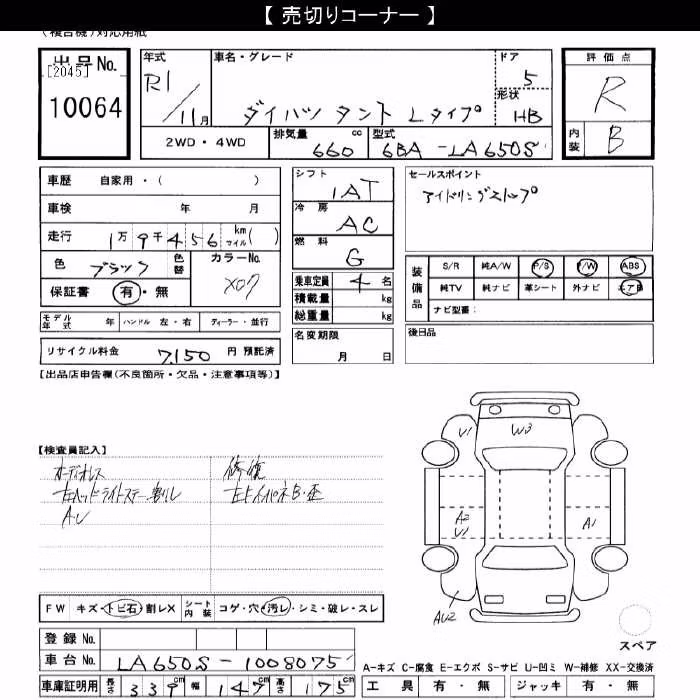 【 売切りコーナー 】
(複合機)対応用紙
出品No. [2045] 10064
年式 R1/11月
車名・グレード ダイハツ タント Lタイプ
ドア 5
形状 HB
評価点 R
内装 B
2WD・4WD
排気量 660 cc
型式 6BA-LA650S
車歴 自家用・( )
車検 年 月
走行 1万9千456 km マイル( )
色 ブラック 色替
カラーNo. X07
保証書 有・無
シフト IAT
冷房 AC
燃料 G
乗車定員 4名
積載量 kg
総重量 kg
セールスポイント
アイドリングストップ
装備品 S/R 純A/W P/S P/W ABS
純TV 純ナビ 革シート 外ナビ エアB
ナビ型番:
モデル年式 年 ハンドル 左・右 ディーラー・並行
名変期限 月 日
後日品
リサイクル料金 7,150 円 預託済
【出品店申告欄(不良箇所・欠品・注意事項等)】
【検査員記入】
オーディオレス
左ヘッドライトステー割れ
AU
修復
左F インパネB・歪
U1 W3
A2 U1 A1
AU2
FW キズ・トビ石・割レX シート内装 コゲ・穴・汚レ・シミ・破レ・スレ
登録No.
車台No. LA650S-1008075
車庫証明用 長さ 339cm 幅 147cm 高さ 175cm
スペア
A-キズ C-腐食 E-エクボ S-サビ U-凹ミ W-補修 XX-交換済
工具 有・無 ジャッキ 有・無